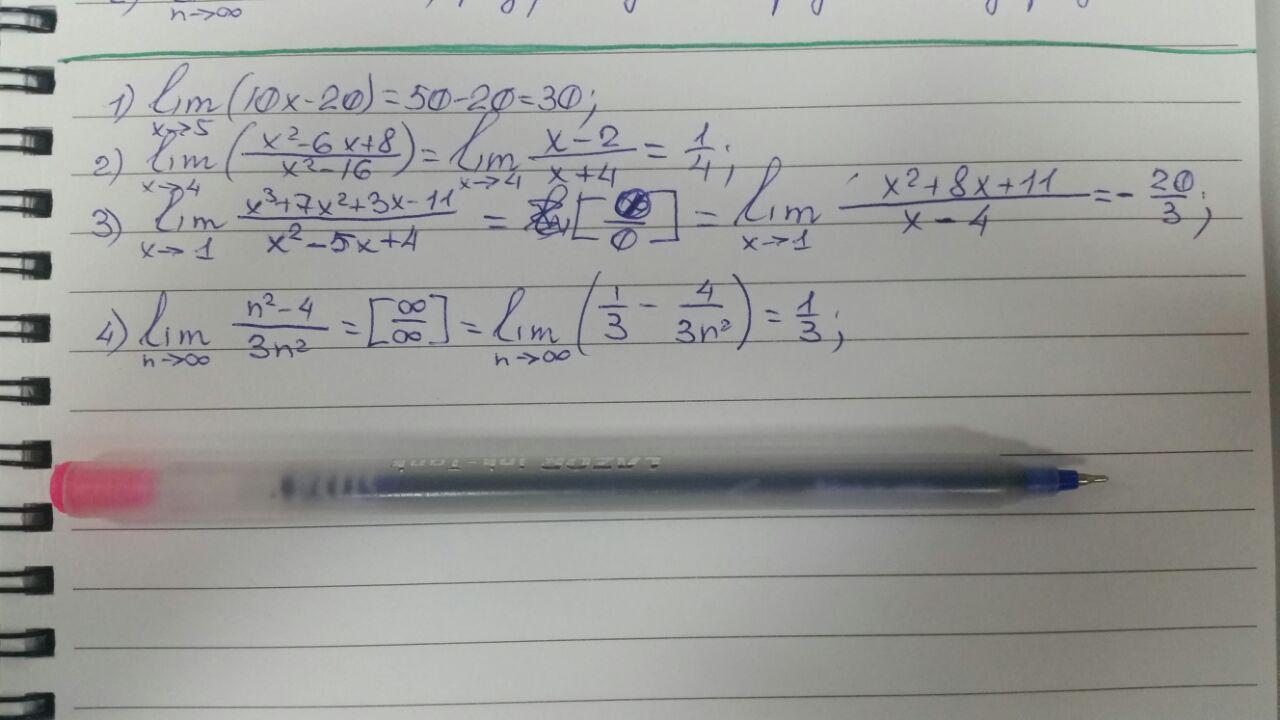 n→∞
1) lim x→5 (10x-20)=50-20=30;
2) lim x→4 (x²-6x+8/x²-16) = lim x→4 x-2/x+4 = 1/4;
3) lim x→1 x³+7x²+3x-11/x²-5x+4 = [0/0] = lim x→1 x²+8x+11/x-4 = - 20/3;
4) lim n→∞ n²-4/3n² = [∞/∞] = lim n→∞ (1/3 - 4/3n²) = 1/3;
LAZOR ink-Tank